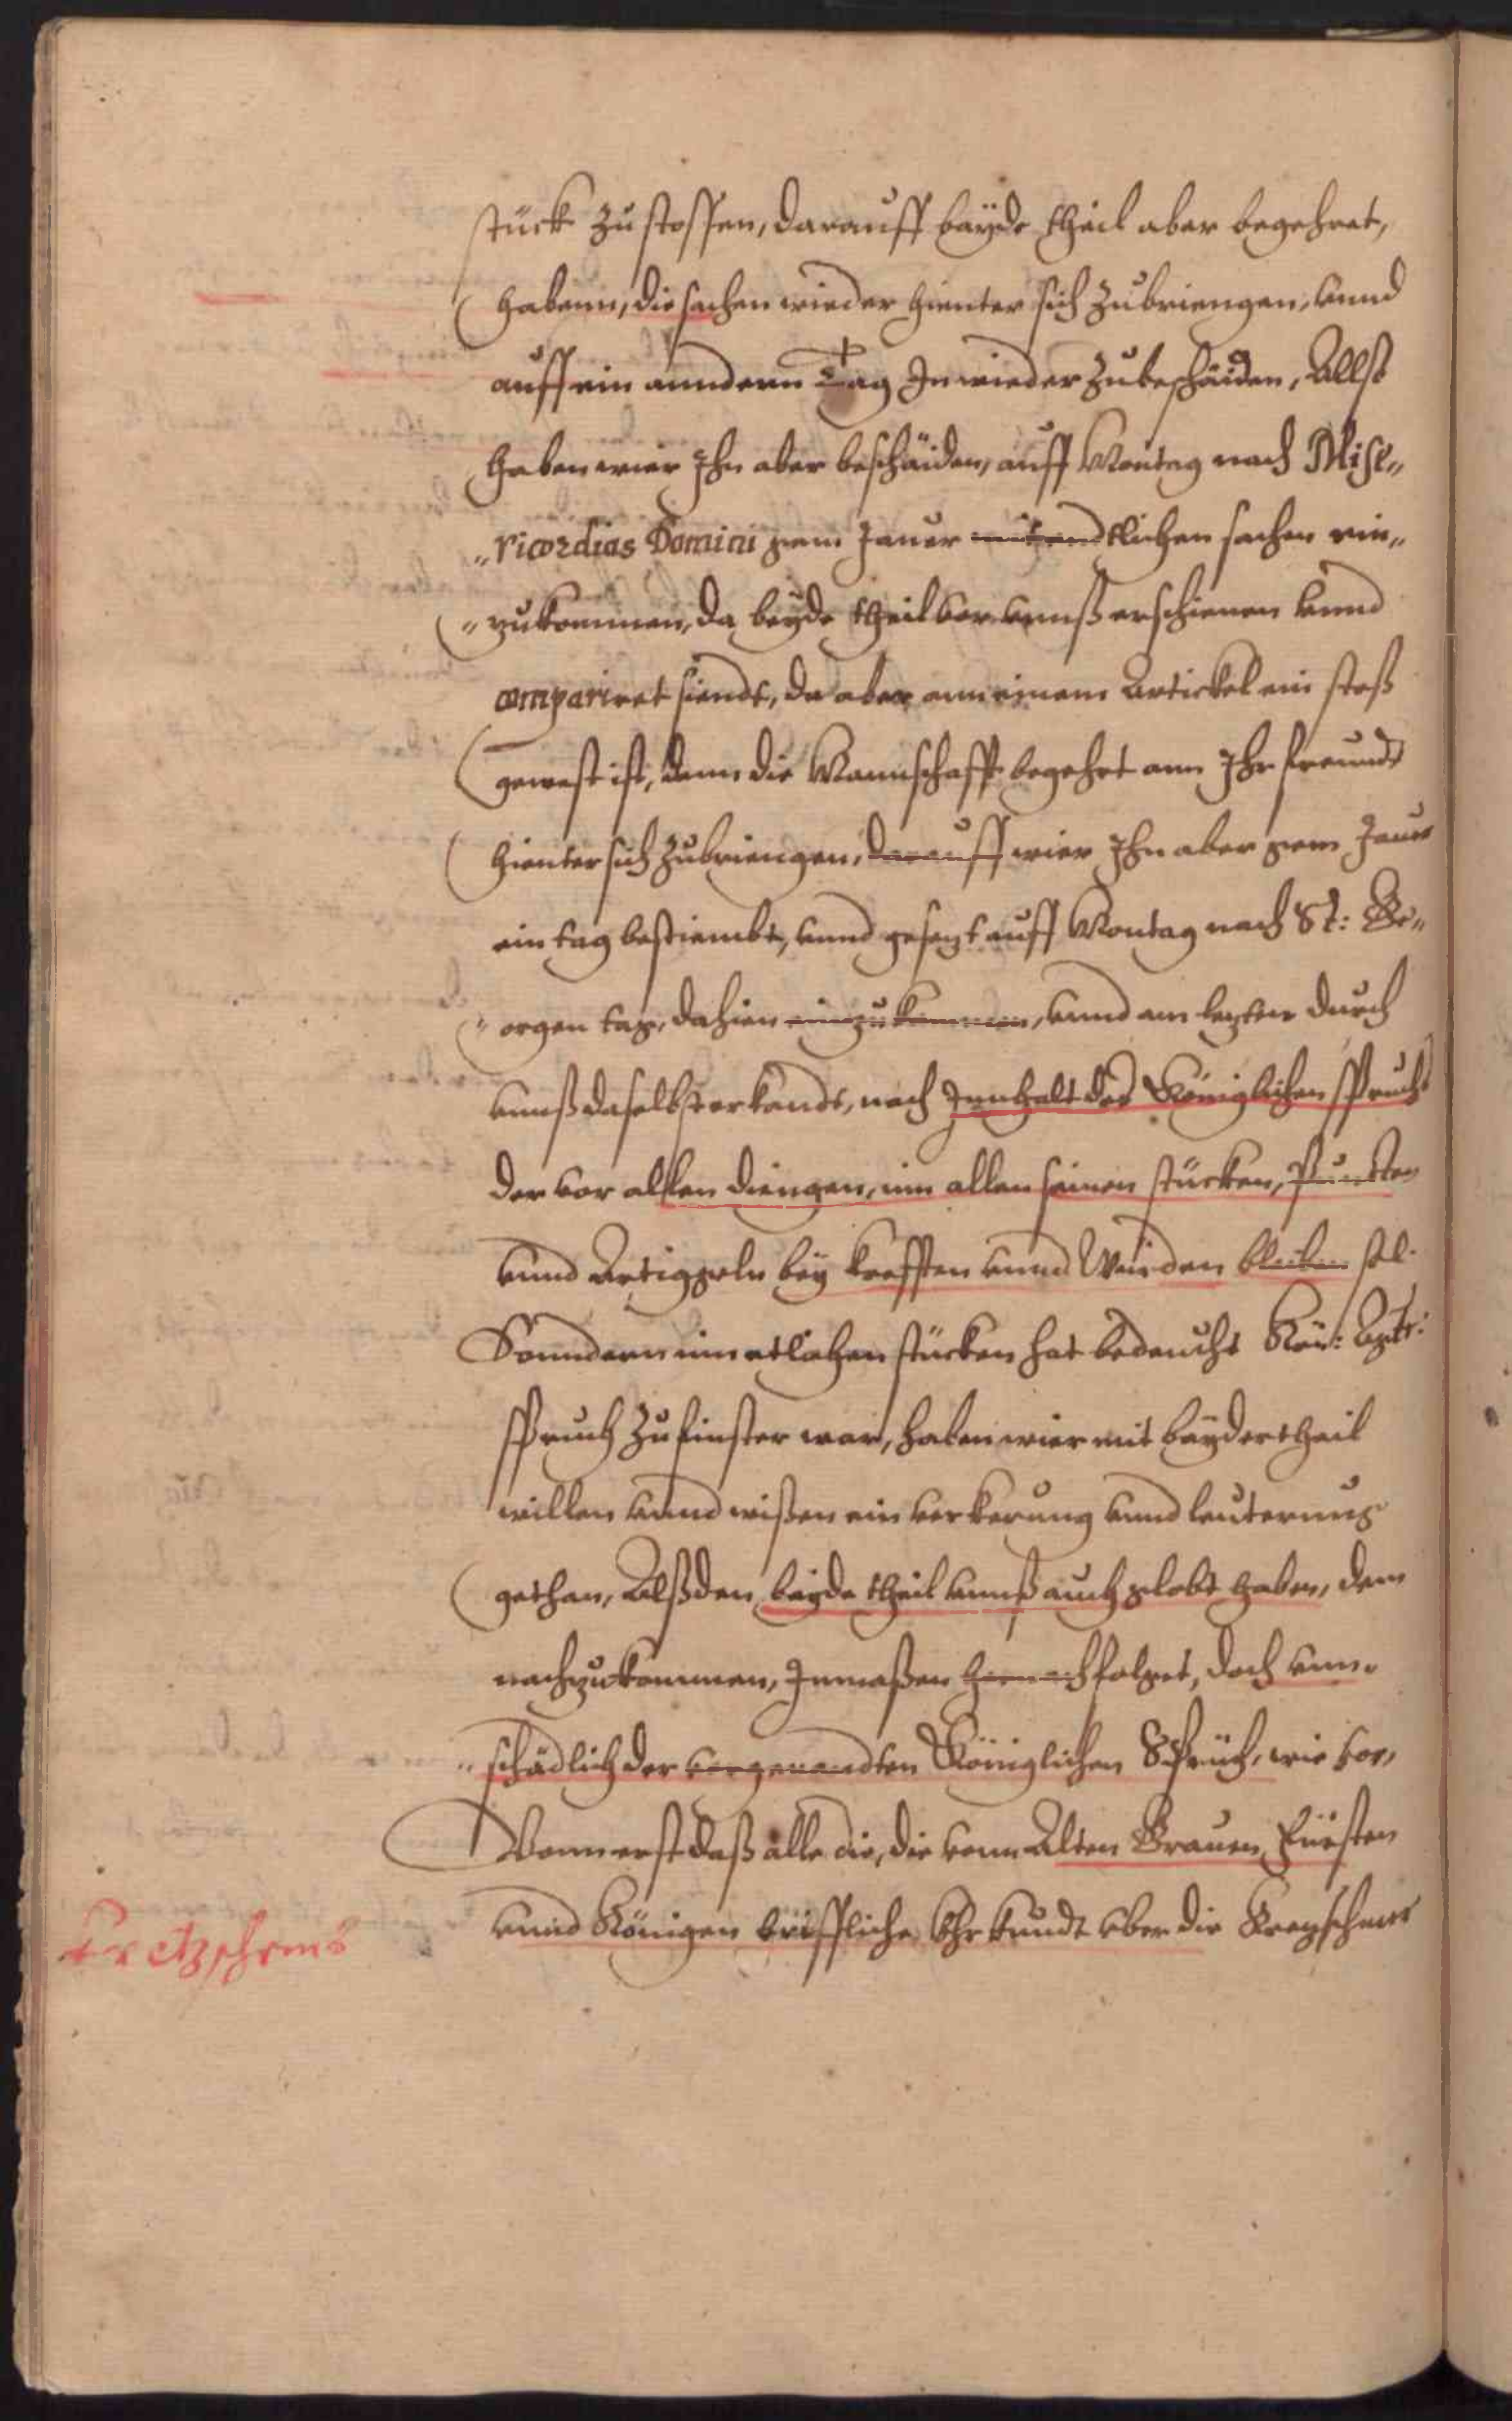 stück zustossen, darauff bayde theil aber begehret,
habenn, die sachen wieder hienter sich zubriengen, vnnd
auff ein anndern Tag Jn wieder zubeschaiden, Allß
haben wier Jhn aber beschaiden, auff Montag nach Mise„
„ricordias Domini zem Jauer mit endtlichen sachen ein„
„zukommen, da beyde theil vor vnnß erschienen vnnd
compariret siendt, da aber ann einem Artickel ein stoß
gewest ist, denn die Mannschafft begehrt ann Jhr freundt
hienter sich zubriengen, darauff wier Jhn aber zem Jauer
ein tag bestiembt, vnnd gesezt auff Montag nach St: Ge„
„orgen tag, dahien einzukommen, vnnd am lezten durch
vnnß daselbst erkandt, nach Jnnhalt des Königlichen spruchs
der vor allen diengen, inn allen seinen stücken, Puncten
vnnd Artiggeln bey krefften vnnd Würden bleiben sol.
Sonndern inn etlichen stücken hat bedeucht Kön: Maytt:
spruch zu finster war, haben wier mit bayder theil
willen vnnd wißen ein verkerung vnnd leuterung
gethan, Alßden beyde theil vnnß auch globt haben, dem
nachzukommen, Jnmaßen hernach folget, doch vnn„
„schädlich der vorgenandten Königlichen Sprüch, wie vor,
Vonn erst daß alle die, die vonn Alten Grauen, Fürsten
vnnd Königen briffliche Vhrkundt vber die Krezschmer
Kretzschems